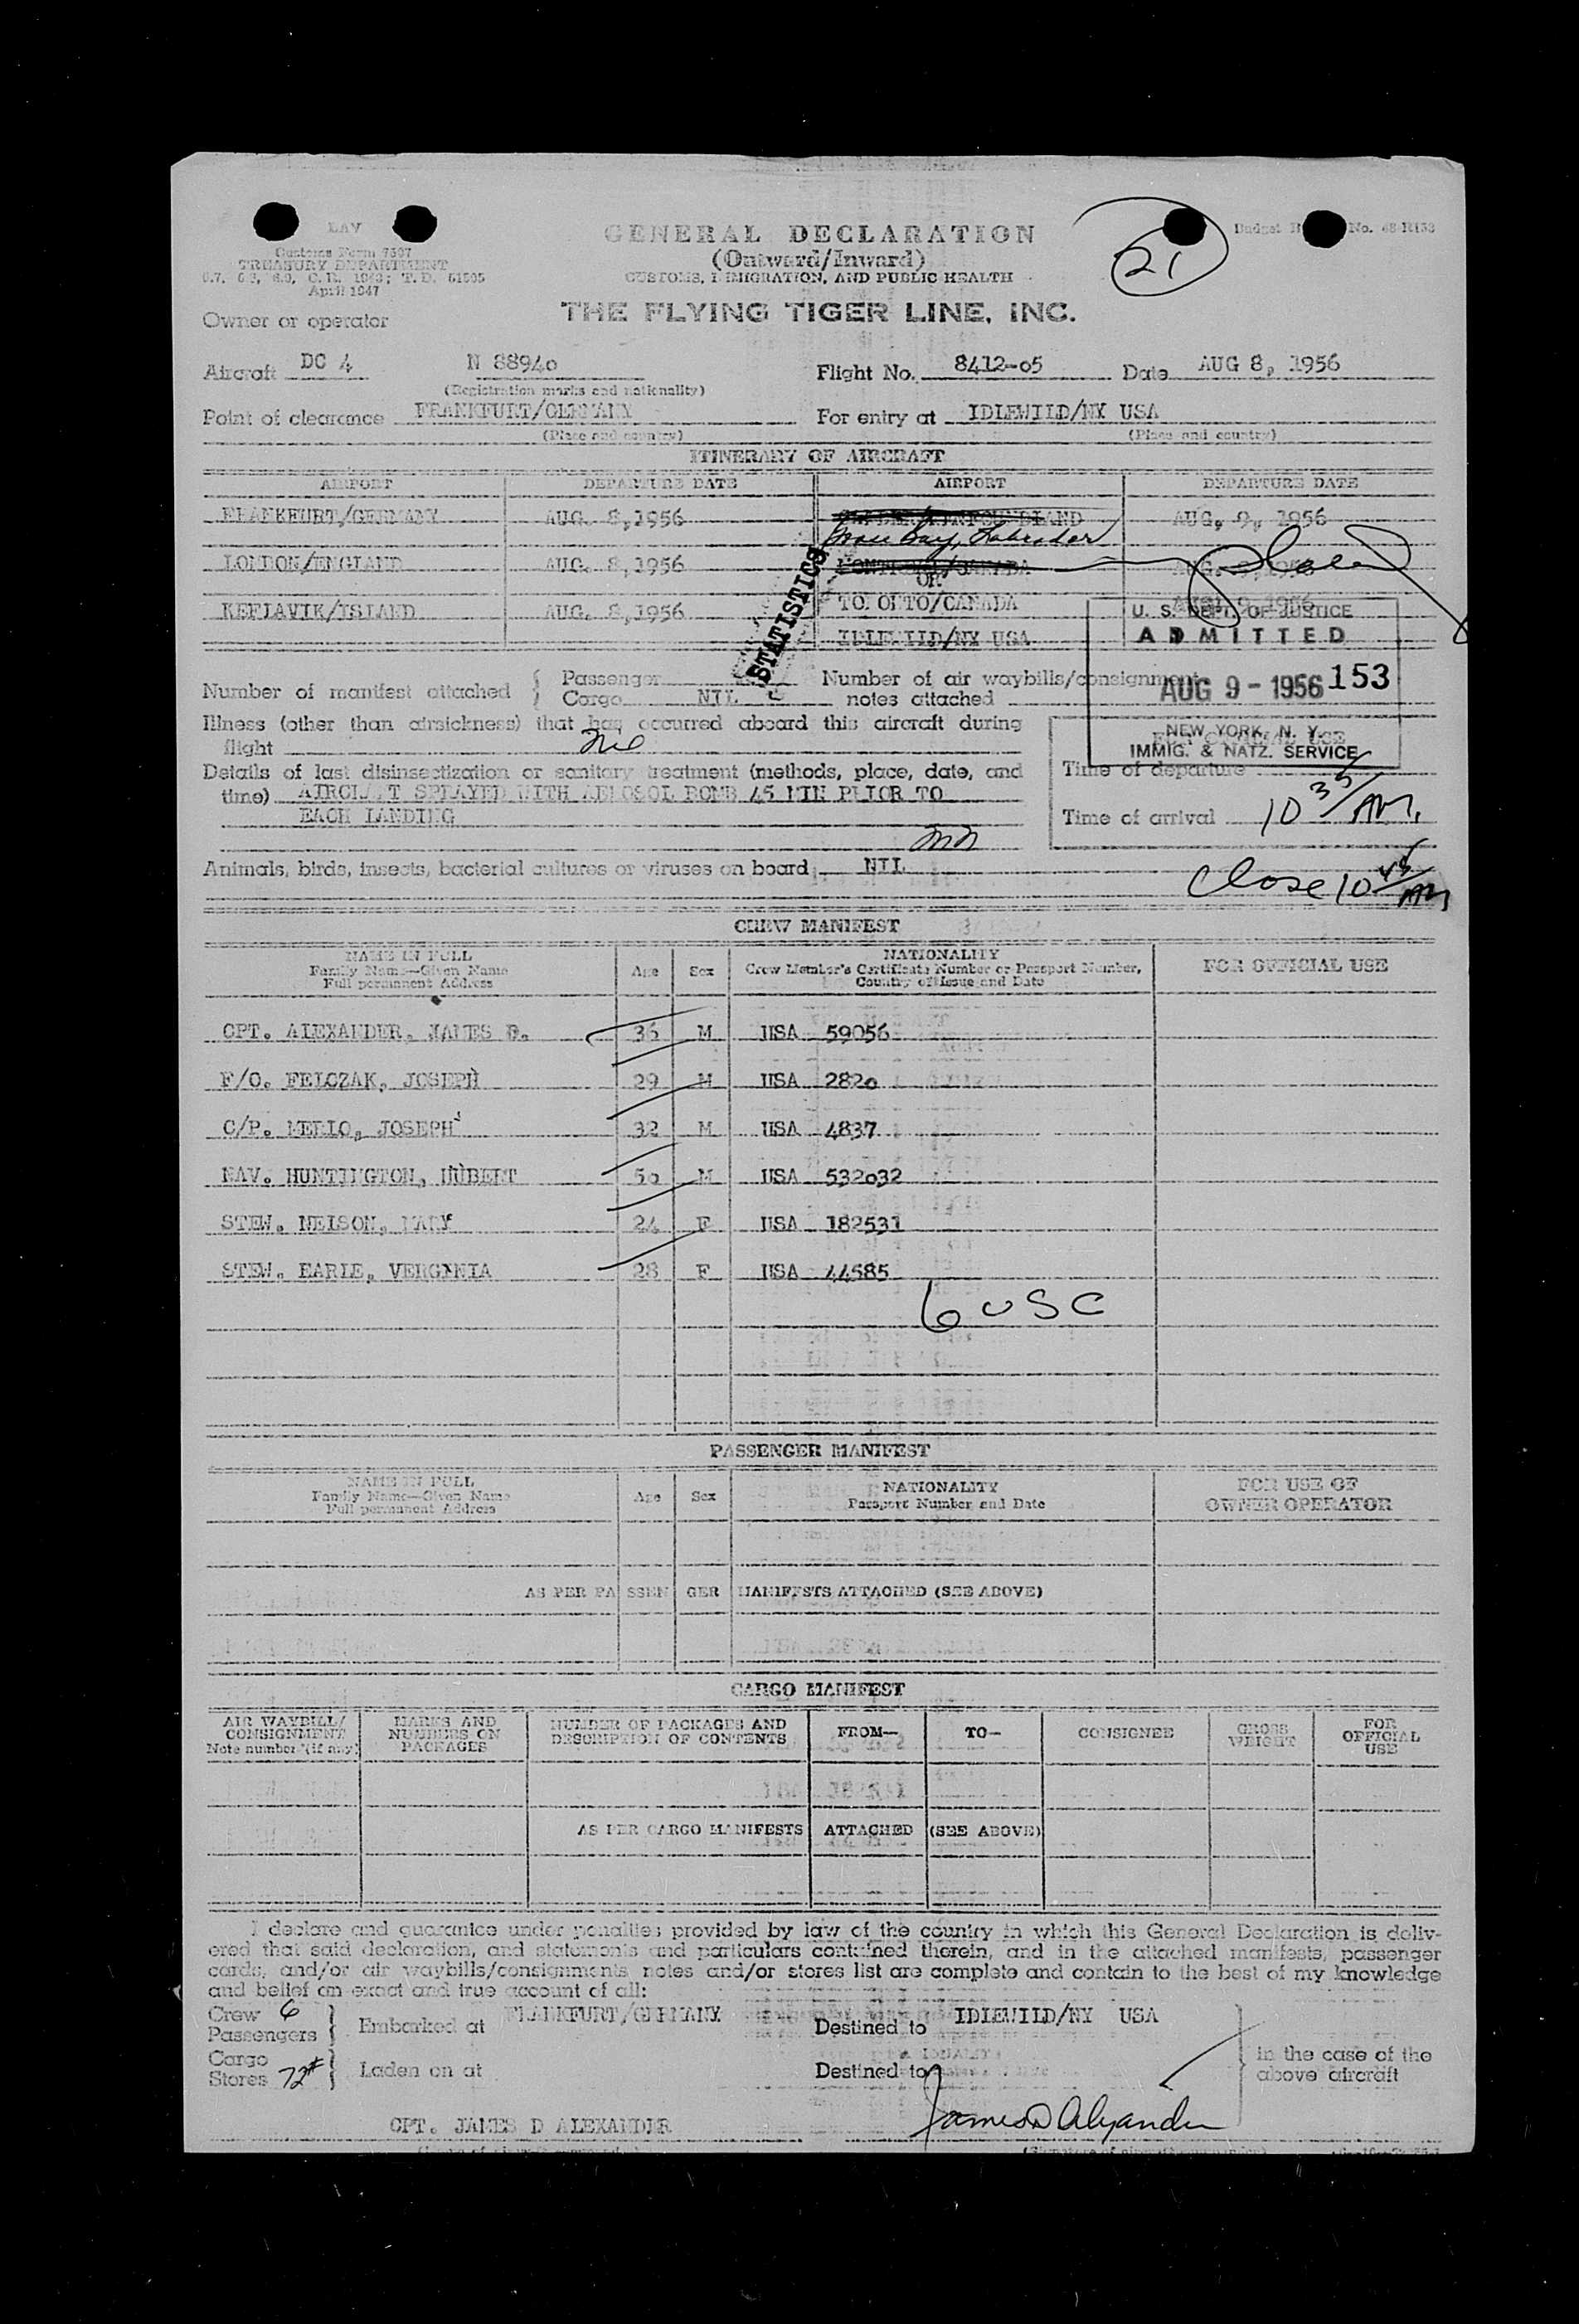 LAV
Customs Form 7507
TREASURY DEPARTMENT
April 1947
GENERAL DECLARATION
(Outward/Inward)
CUSTOMS, IMMIGRATION, AND PUBLIC HEALTH
21
Budget No. 48-R153
THE FLYING TIGER LINE, INC.
Owner or operator
Aircraft DC 4 N 88940 Flight No. 8412-05 Date AUG 8, 1956
(Registration marks and nationality)
Point of clearance FRANKFURT/GERMANY For entry at IDLEWILD/NY USA
(Place and country) (Place and country)
ITINERARY OF AIRCRAFT
AIRPORT DEPARTURE DATE AIRPORT DEPARTURE DATE
FRANKFURT/GERMANY AUG. 8,1956 AUG. 9, 1956
Goose Bay, Labrador
LONDON/ENGLAND AUG. 8,1956 MONTREAL/CANADA AUG. 9,1956
OR
KEFLAVIK/ISLAND AUG. 8,1956 TORONTO/CANADA AUG. 9 1956
IDLEWILD/NY USA
STATISTICS
U. S. DEPT. OF JUSTICE
ADMITTED
AUG 9 - 1956 153
NEW YORK, N. Y.
IMMIG. & NATZ. SERVICE
Number of manifest attached Passenger Number of air waybills/consignment
Cargo NIL notes attached
Illness (other than airsickness) that has occurred aboard this aircraft during
flight Nil
Details of last disinsectization or sanitary treatment (methods, place, date, and
time) AIRCRAFT SPRAYED WITH AEROSOL BOMB 45 MIN PRIOR TO
EACH LANDING
FOR OFFICIAL USE
Time of departure
Time of arrival 10 35/AM.
Animals, birds, insects, bacterial cultures or viruses on board NIL
Close 10 45/AM
CREW MANIFEST
NAME IN FULL
Family Name—Given Name
Full permanent Address
Age Sex
NATIONALITY
Crew Member's Certificate Number or Passport Number,
Country of Issue and Date
FOR OFFICIAL USE
CPT. ALEXANDER, JAMES D. 36 M USA 59056
F/O. FELCZAK, JOSEPH 29 M USA 2820
C/P. MERLO, JOSEPH 32 M USA 4837
NAV. HUNTINGTON, HUBERT 50 M USA 532032
STEW. NELSON, MARY 24 F USA 182531
STEW. EARLE, VERGINIA 28 F USA 44585
6 USC
PASSENGER MANIFEST
NAME IN FULL
Family Name—Given Name
Full permanent Address
Age Sex
NATIONALITY
Passport Number and Date
FOR USE OF
OWNER OPERATOR
AS PER PASSENGER MANIFESTS ATTACHED (SEE ABOVE)
CARGO MANIFEST
AIR WAYBILL/
CONSIGNMENT
Note number (if any)
MARKS AND
NUMBERS ON
PACKAGES
NUMBER OF PACKAGES AND
DESCRIPTION OF CONTENTS
FROM— TO— CONSIGNEE
GROSS
WEIGHT
FOR
OFFICIAL
USE
AS PER CARGO MANIFESTS ATTACHED (SEE ABOVE)
I declare and guarantee under penalties provided by law of the country in which this General Declaration is deliv-
ered that said declaration, and statements and particulars contained therein, and in the attached manifests, passenger
cards, and/or air waybills/consignments notes and/or stores list are complete and contain to the best of my knowledge
and belief an exact and true account of all:
Crew 6
Passengers Embarked at FRANKFURT/GERMANY Destined to IDLEWILD/NY USA
Cargo
Stores 72# Laden on at Destined to
in the case of the
above aircraft
CPT. JAMES D ALEXANDER James D Alexander
(Signature of aircraft commander)